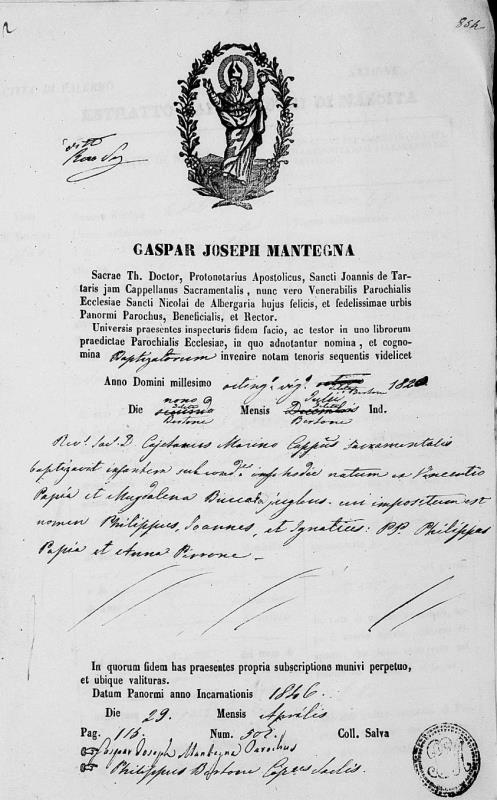 854
GASPAR JOSEPH MANTEGNA
Sacrae Th. Doctor, Protonotarius Apostolicus, Sancti Joannis de Tar-
taris jam Cappellanus Sacramentalis, nunc vero Venerabilis Parochialis
Ecclesiae Sancti Nicolai de Albergaria hujus felicis, et fedelissimae urbis
Panormi Parochus, Beneficialis, et Rector.
Universis praesentes inspecturis fidem facio, ac testor in uno librorum
praedictae Parochialis Ecclesiae, in quo adnotantur nomina, et cogno-
mina Baptizatorum invenire notam tenoris sequentis videlicet
Anno Domini millesimo 182
Die nono Mensis Julii Ind.
Bertone Bertone
Rev. Sac. D. Cajetanus Marino Cappus Sacramentalis
baptizavit infantem sub cond. hodie natum ex Vincentio
Papia et Magdalena jugibus. cui impositum est
nomen Philippus, Joannes, et Ignatius: PP. Philippus
Papia et Anna Perrone
In quorum fidem has praesentes propria subscriptione munivi perpetuo,
et ubique valituras.
Datum Panormi anno Incarnationis 1846.
Die 29. Mensis Aprilis
Pag. 115. Num. Coll. Salva
Gaspar Joseph Mantegna Parochus
Philippus Bertone